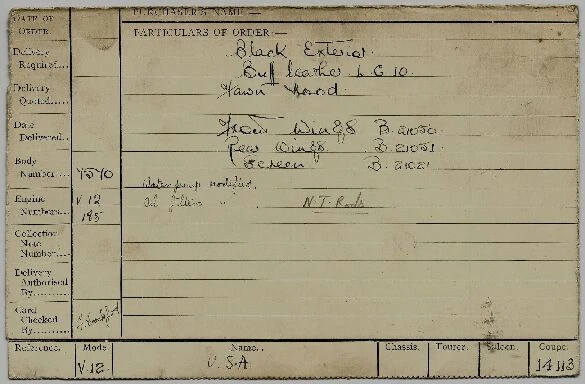 PURCHASER'S NAME—
DATE OF ORDER.
PARTICULARS OF ORDER—
Black Exterior
Delivery Required...
Buff leather L.G 10.
Fawn Hood
Delivery Quoted.....
Date Delivered...
Front Wings B.21050
Rear Wings B.21051
Screen B.21021
Body Number... 4570
Water pump modified.
Engine Numbers... V 12 195
Oil fillers " N.T. Rods
Collection Note Number....
Delivery Authorised By.....
Card Checked By....
Reference. Model Name. Chassis. Tourer. Saloon. Coupe.
V.12. U.S.A 14113